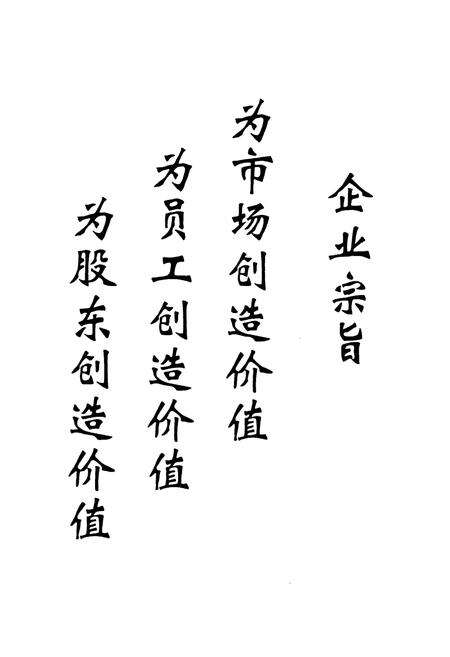 企业宗旨
为市场创造价值
为员工创造价值
为股东创造价值